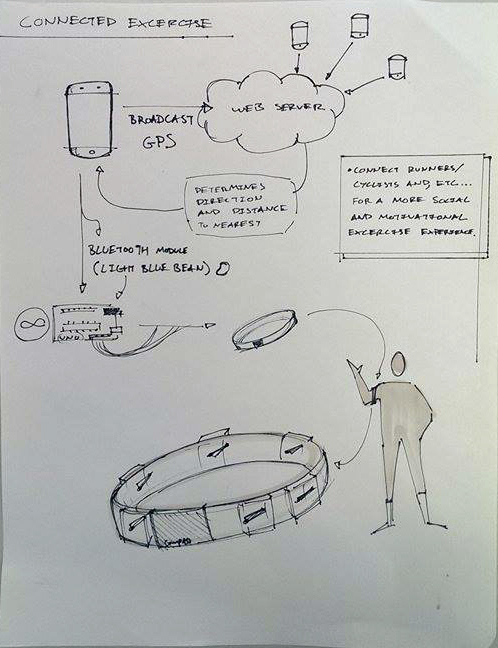 CONNECTED EXCERCISE
WEB SERVER
BROADCAST
GPS
DETERMINES
DIRECTION
AND DISTANCE
TO NEAREST
• CONNECT RUNNERS/
CYCLISTS AND, ETC...
FOR A MORE SOCIAL
AND MOTIVATIONAL
EXCERCISE EXPERIENCE.
BLUETOOTH MODULE
(LIGHT BLUE BEAN)
UNO